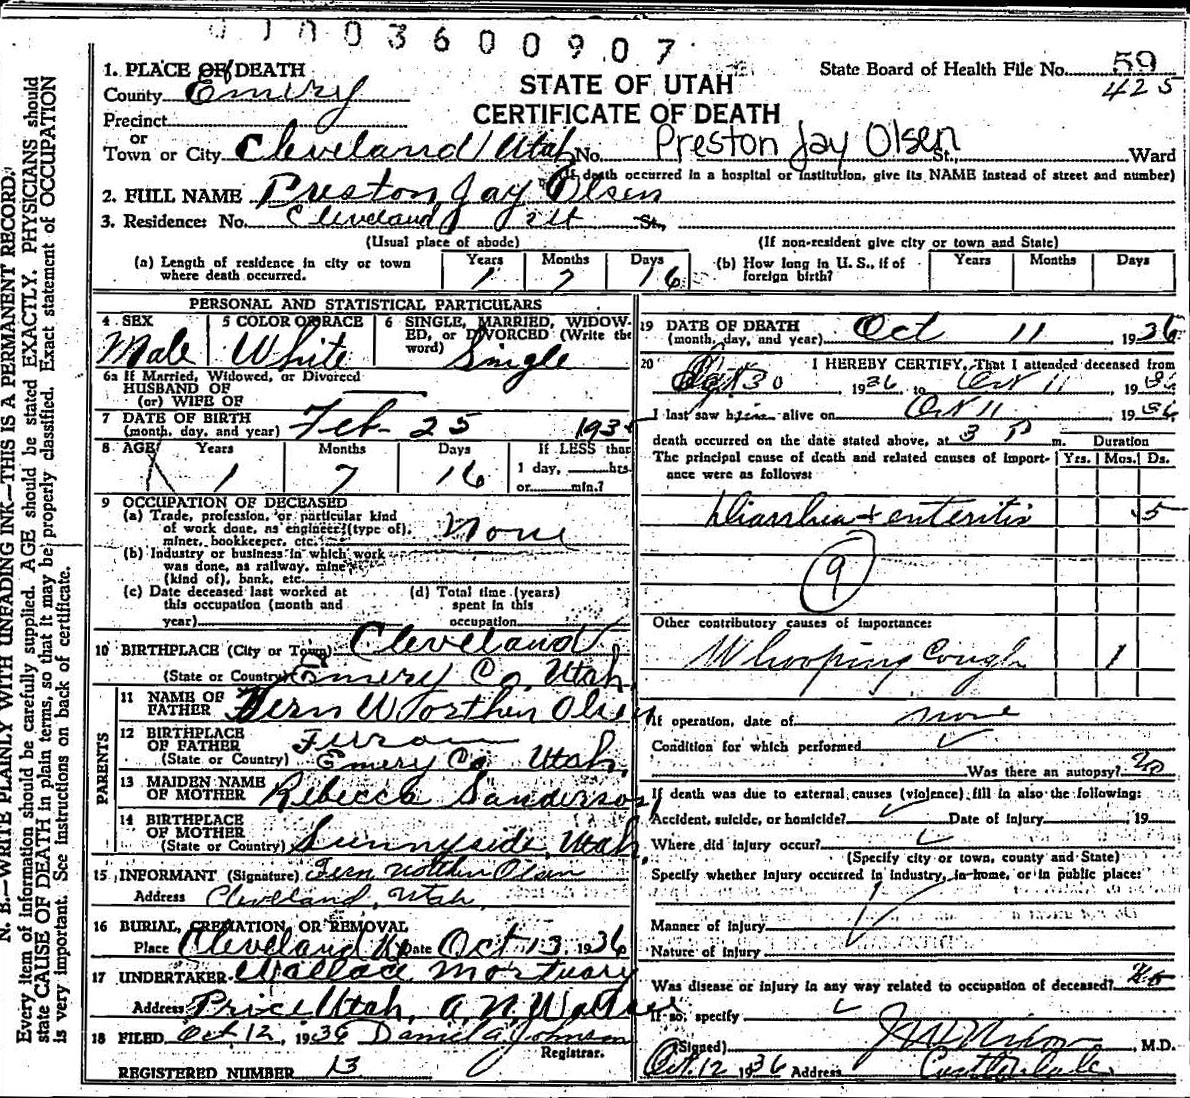 01003600907
1. PLACE OF DEATH
County Emery
STATE OF UTAH
CERTIFICATE OF DEATH
State Board of Health File No. 59
425
Precinct
or
Town or City Cleveland, Utah No. Preston Jay Olsen St., Ward
(If death occurred in a hospital or institution, give its NAME instead of street and number)
2. FULL NAME Preston Jay Olsen
3. Residence: No. Cleveland Ut St.,
(Usual place of abode) (If non-resident give city or town and State)
(a) Length of residence in city or town where death occurred. Years 1 Months 7 Days 16
(b) How long in U. S., if of foreign birth? Years Months Days
PERSONAL AND STATISTICAL PARTICULARS
4 SEX Male
5 COLOR OR RACE White
6 SINGLE, MARRIED, WIDOWED, OR DIVORCED (Write the word) Single
6a If Married, Widowed, or Divorced
HUSBAND OF
(or) WIFE OF
7 DATE OF BIRTH
(month, day, and year) Feb- 25 1935
8 AGE Years 1 Months 7 Days 16 If LESS than
1 day, hrs.
or min.?
9 OCCUPATION OF DECEASED
(a) Trade, profession, or particular kind
of work done, as engineer (type of),
miner, bookkeeper, etc. None
(b) Industry or business in which work
was done, as railway, mine
(kind of), bank, etc.
(c) Date deceased last worked at
this occupation (month and
year)
(d) Total time (years)
spent in this
occupation
10 BIRTHPLACE (City or Town) Cleveland
(State or Country) Emery Co, Utah.
PARENTS
11 NAME OF FATHER Fern Worthen Olsen
12 BIRTHPLACE OF FATHER Ferron
(State or Country) Emery Co, Utah.
13 MAIDEN NAME OF MOTHER Rebecca Sanderson
14 BIRTHPLACE OF MOTHER
(State or Country) Sunnyside, Utah.
15 INFORMANT (Signature) Fern Worthen Olsen
Address Cleveland, Utah.
16 BURIAL, CREMATION, OR REMOVAL
Place Cleveland Ut Date Oct 13. 1936
17 UNDERTAKER Wallace Mortuary
Address Price Utah. A. N. Wallace
18 FILED Oct. 12, 1936 Daniel A. Johnson
Registrar.
REGISTERED NUMBER 13
19 DATE OF DEATH
(month, day, and year) Oct 11 1936
20 I HEREBY CERTIFY, That I attended deceased from
30 1936 to Oct 11 1936
I last saw him alive on Oct 11 1936
death occurred on the date stated above, at 3 P m. Duration
The principal cause of death and related causes of importance were as follows: Yrs. Mos. Ds.
Diarrhea + enteritis 5
9
Other contributory causes of importance:
Whooping Cough 1
If operation, date of none
Condition for which performed
Was there an autopsy? no
If death was due to external causes (violence) fill in also the following:
Accident, suicide, or homicide? Date of injury , 19
Where did injury occur?
(Specify city or town, county and State)
Specify whether injury occurred in industry, in home, or in public place:
Manner of injury
Nature of injury
Was disease or injury in any way related to occupation of deceased? no
If so, specify
(Signed) J W Nixon , M.D.
Oct. 12 1936 Address Castle Dale.
N. B.—WRITE PLAINLY WITH UNFADING INK—THIS IS A PERMANENT RECORD.
Every item of information should be carefully supplied. AGE should be stated EXACTLY. PHYSICIANS should
state CAUSE OF DEATH in plain terms, so that it may be properly classified. Exact statement of OCCUPATION
is very important. See instructions on back of certificate.